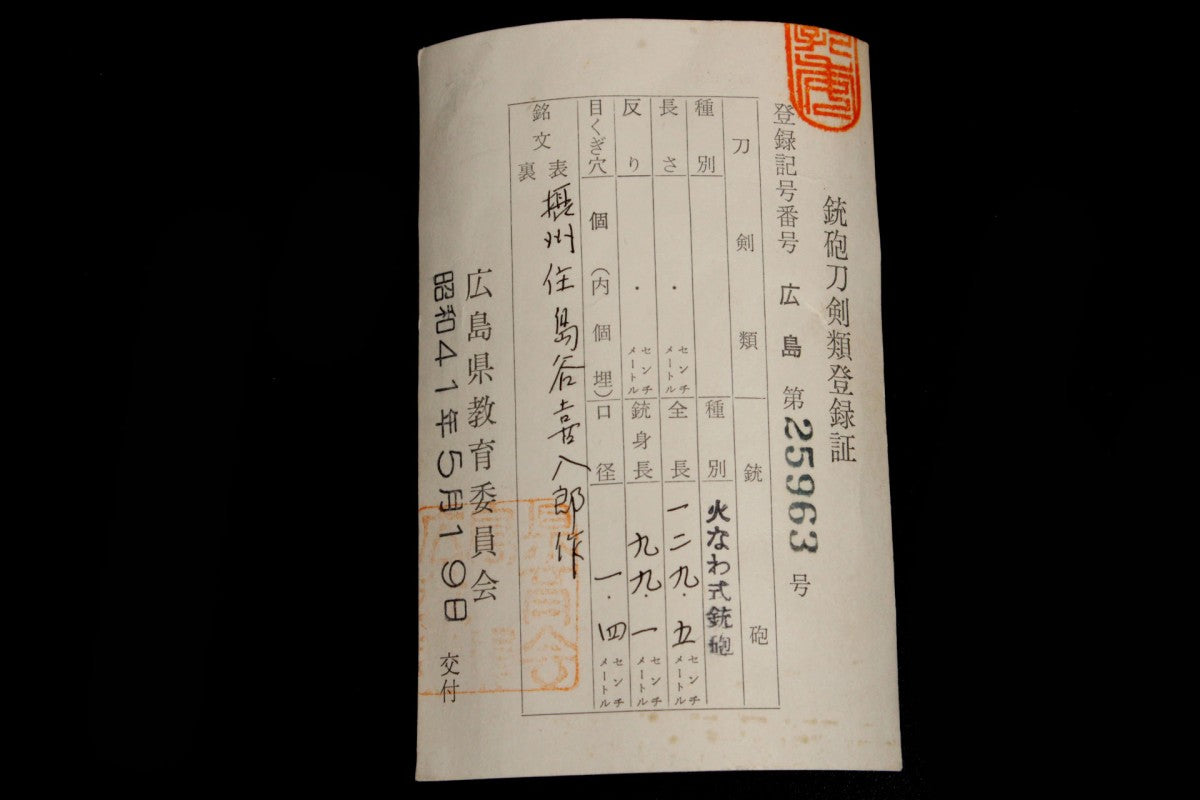 銃砲刀剣類登録証
登録記号番号 広島 第25963号
刀剣類
銃砲
種別
長さ ・ センチメートル
反り ・ センチメートル
目くぎ穴 個(内 個埋)
種別 火なわ式銃砲
全長 一二九・五 センチメートル
銃身長 九九・一 センチメートル
口径 一・四 センチメートル
銘文 表 摂州住島谷喜八郎作
裏
広島県教育委員会
昭和41年5月19日 交付